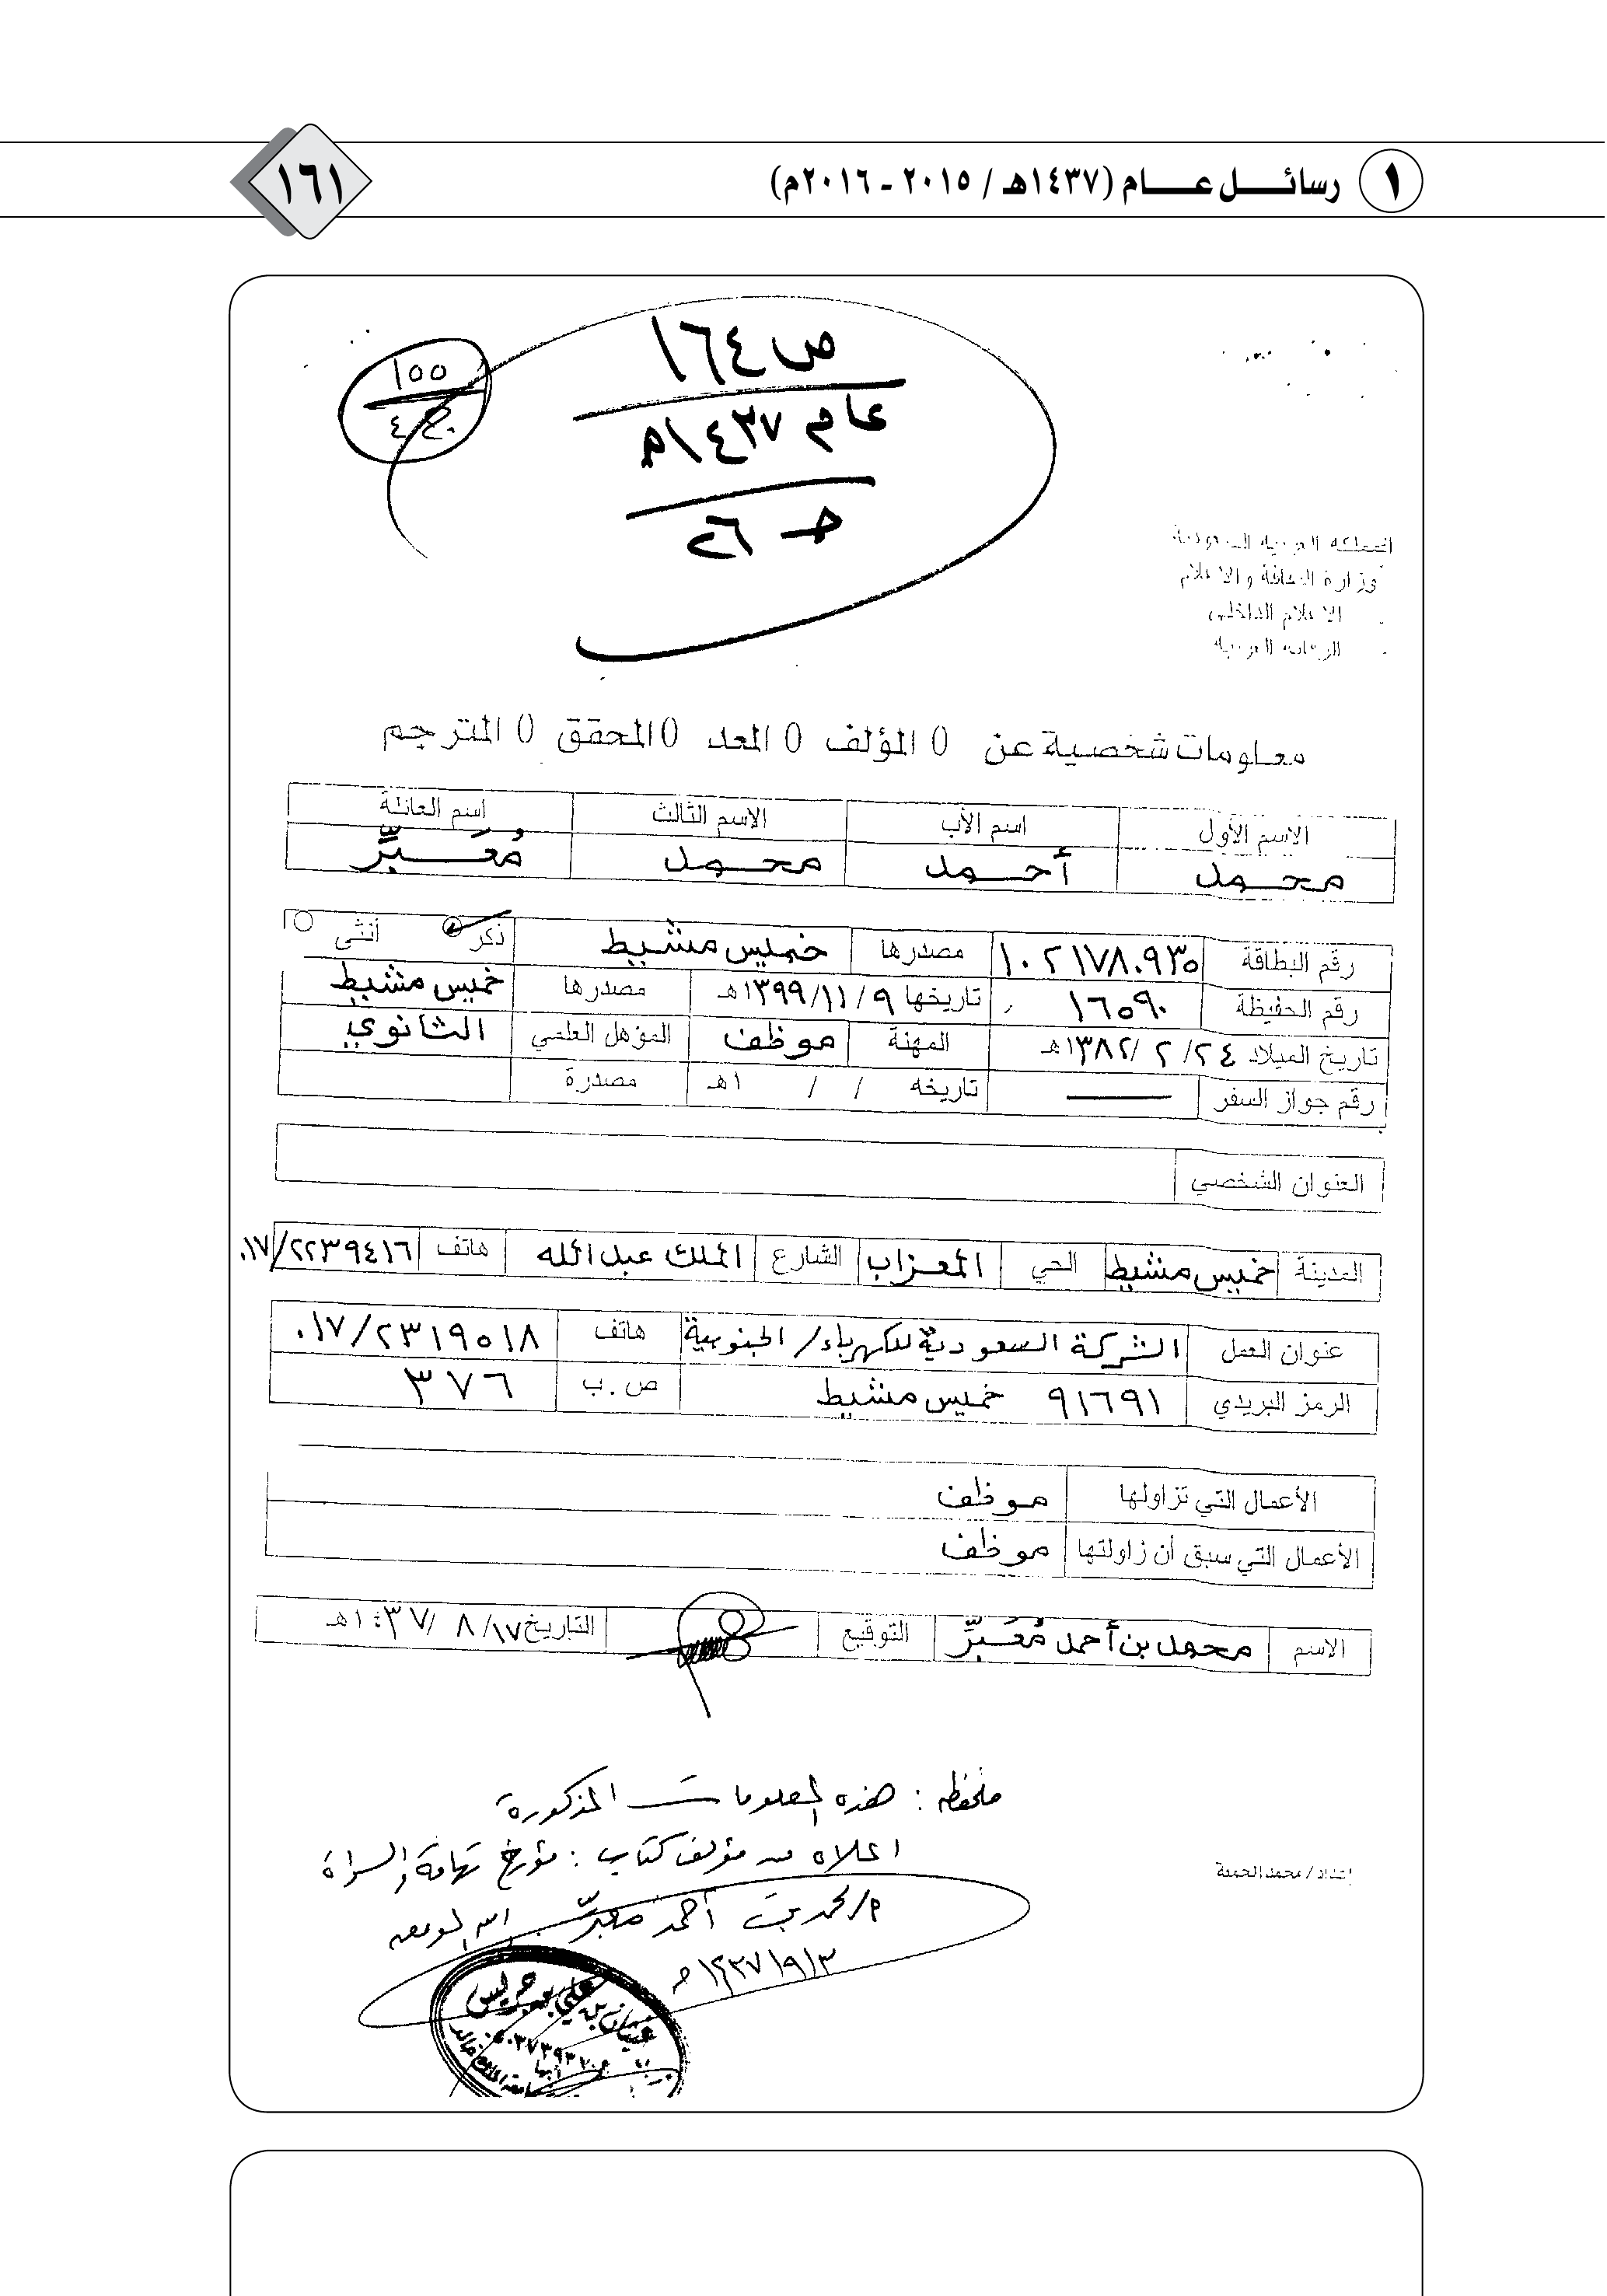 ١ رسائل عام (١٤٣٧هـ / ٢٠١٥ - ٢٠١٦م)
١٦١
ص ١٦٤
عام ١٤٣٧هـ
حـ ٢٦
١٥٥
ج ٤
المملكة العربية السعودية
وزارة الثقافة والاعلام
الاعلام الداخلي
معلومات شخصية عن () المؤلف () المعد () المحقق () المترجم
الاسم الأول اسم الأب الاسم الثالث اسم العائلة
محمد أحمد محمد مُعَبِّر
رقم البطاقة ١٠٢١٧٨٠٩٣٥ مصدرها خميس مشيط ذكر أنثى
رقم الحفيظة ١٦٥٩٠ تاريخها ٩/١١/١٣٩٩هـ مصدرها خميس مشيط
تاريخ الميلاد ٢٤/٢/١٣٨٢هـ المهنة موظف المؤهل العلمي الثانوي
رقم جواز السفر — تاريخه / / ١هـ مصدرة
العنوان الشخصي
المدينة خميس مشيط الحي المعزاب الشارع الملك عبدالله هاتف ٠١٧/٢٢٣٩٤١٦
عنوان العمل الشركة السعودية للكهرباء/ الجنوبية هاتف ٠١٧/٢٣١٩٥١٨
الرمز البريدي ٩١٦٩١ خميس مشيط ص.ب ٣٧٦
الأعمال التي تزاولها موظف
الأعمال التي سبق أن زاولتها موظف
الاسم محمد بن أحمد مُعَبِّر التوقيع التاريخ ١٧/٨/١٤٣٧هـ
ملحظه : هذه المعلومات المذكورة
اعلاه من مؤلف كتاب : مؤرخ تهامة والسراة
م/ محمد بن أحمد معبّر
١٤٣٧/٩/٣هـ
إعداد / محمد الحميّة
بن علي بن جريس
أبها